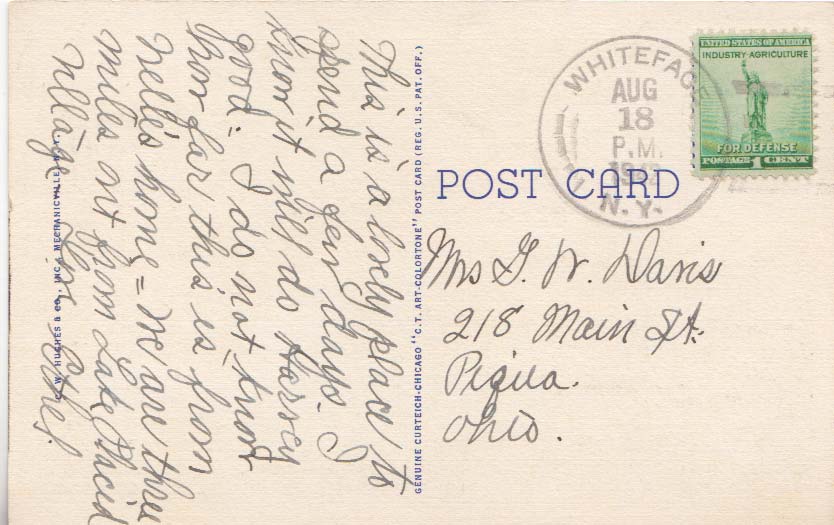 This is a lovely place to
spend a few days. I
know it will do Harvey
good. I do not know
how far this is from
Nell's home = We are three
miles out from Lake Placid
Village
C. W. HUGHES & CO., INC., MECHANICVILLE, N. Y.
GENUINE CURTEICH-CHICAGO "C. T. ART-COLORTONE" POST CARD (REG. U. S. PAT. OFF.)
POST CARD
WHITEFACE
AUG
18
P.M.
N.Y.
UNITED STATES OF AMERICA
INDUSTRY·AGRICULTURE
FOR DEFENSE
POSTAGE 1 CENT
Mrs G. W. Davis
218 Main St.
Piqua.
Ohio.